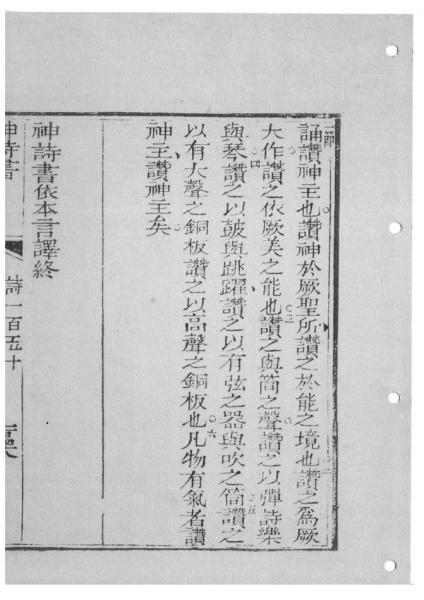 一節
誦讚神主也讚神於厥聖所讚之於能之境也讚之為厥
大作讚之依厥美之能也讚之與筒之聲讚之以彈詩樂
與琴讚之以鼓與跳躍讚之以有弦之器與吹之筒讚之
以有大聲之銅板讚之以高聲之銅板也凡物有氣者讚
神主讚神主矣
神詩書依本言譯終
神詩書
詩一百五十